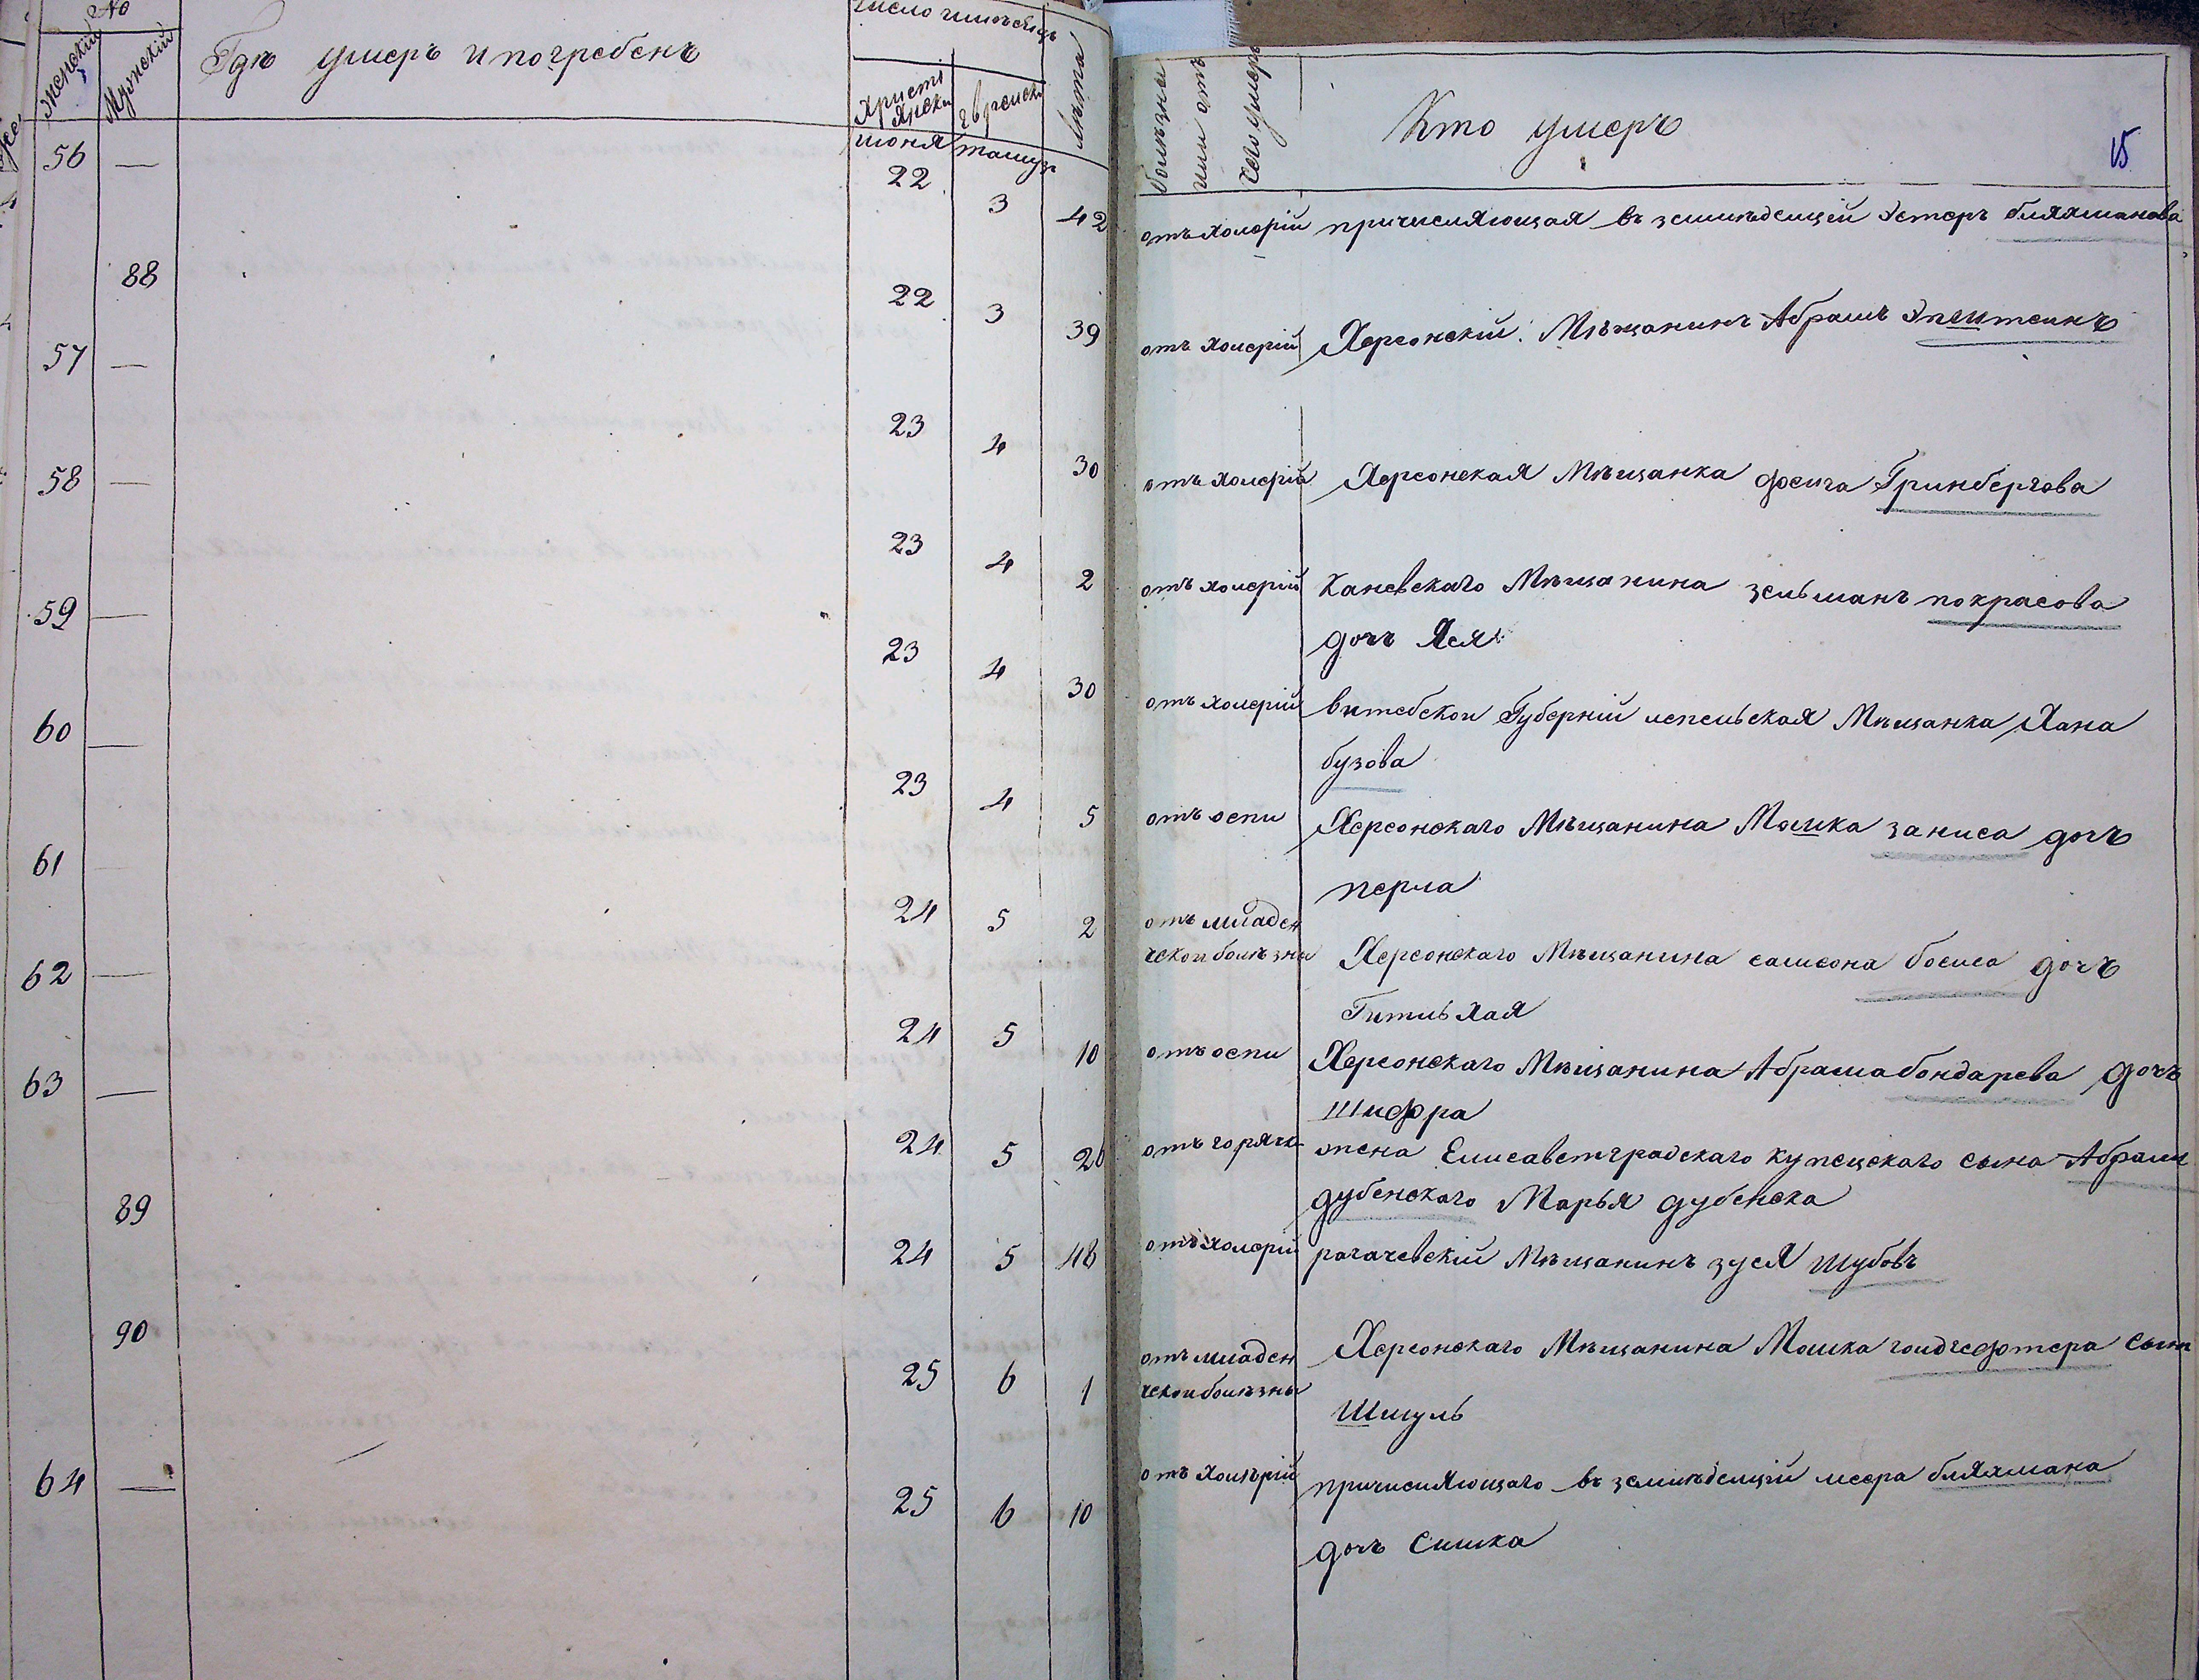 №
Женский
Мужский
Гдѣ умеръ и погребенъ
Число и мѣсяцъ
Христі
янски
Еврейски
Лѣта
болѣзнь
или отъ
чего умеръ
Кто умеръ
15
июня тамузъ
56 — 22 3 42 отъ холерій причисляющая въ земледѣлцій Эстеръ бляхманова
88 22 3 39 отъ холерій Херсонскій Мѣщанинъ Абрамъ Эпштеинъ
57 — 23 4 30 отъ холерій Херсонская Мѣщанка фейга Гринбергова
58 — 23 4 2 отъ холерій Каневскаго Мѣщанина зельманъ покрасова
дочъ Хся
59 — 23 4 30 отъ холерій витебской Губерній лепельская Мѣщанка Хана
бузова
60 — 23 4 5 отъ оспи Херсонскаго Мѣщанина Мошка заниса дочъ
перла
61 — 24 5 2 отъ младен
ческой болѣзни Херсонскаго Мѣщанина самсона босиса дочъ
Гитль хая
62 — 24 5 10 отъ оспи Херсонскаго Мѣщанина Абрама бондарева дочъ
Шифра
63 — 24 5 26 отъ горячк жена Елисаветградскаго купецскаго сына Абрами
дубенскаго Марья дубенска
89 24 5 48 отъ холерій рагачевскій Мѣщанинъ зуся шубовъ
90 25 6 1 отъ младен
ческой болѣзны Херсонскаго Мѣщанина Мошка голдгефтера сынъ
Шмуль
64 — 25 6 10 отъ холѣрій причисляющаго въ земледѣлцій меера бляхмана
дочъ Симка